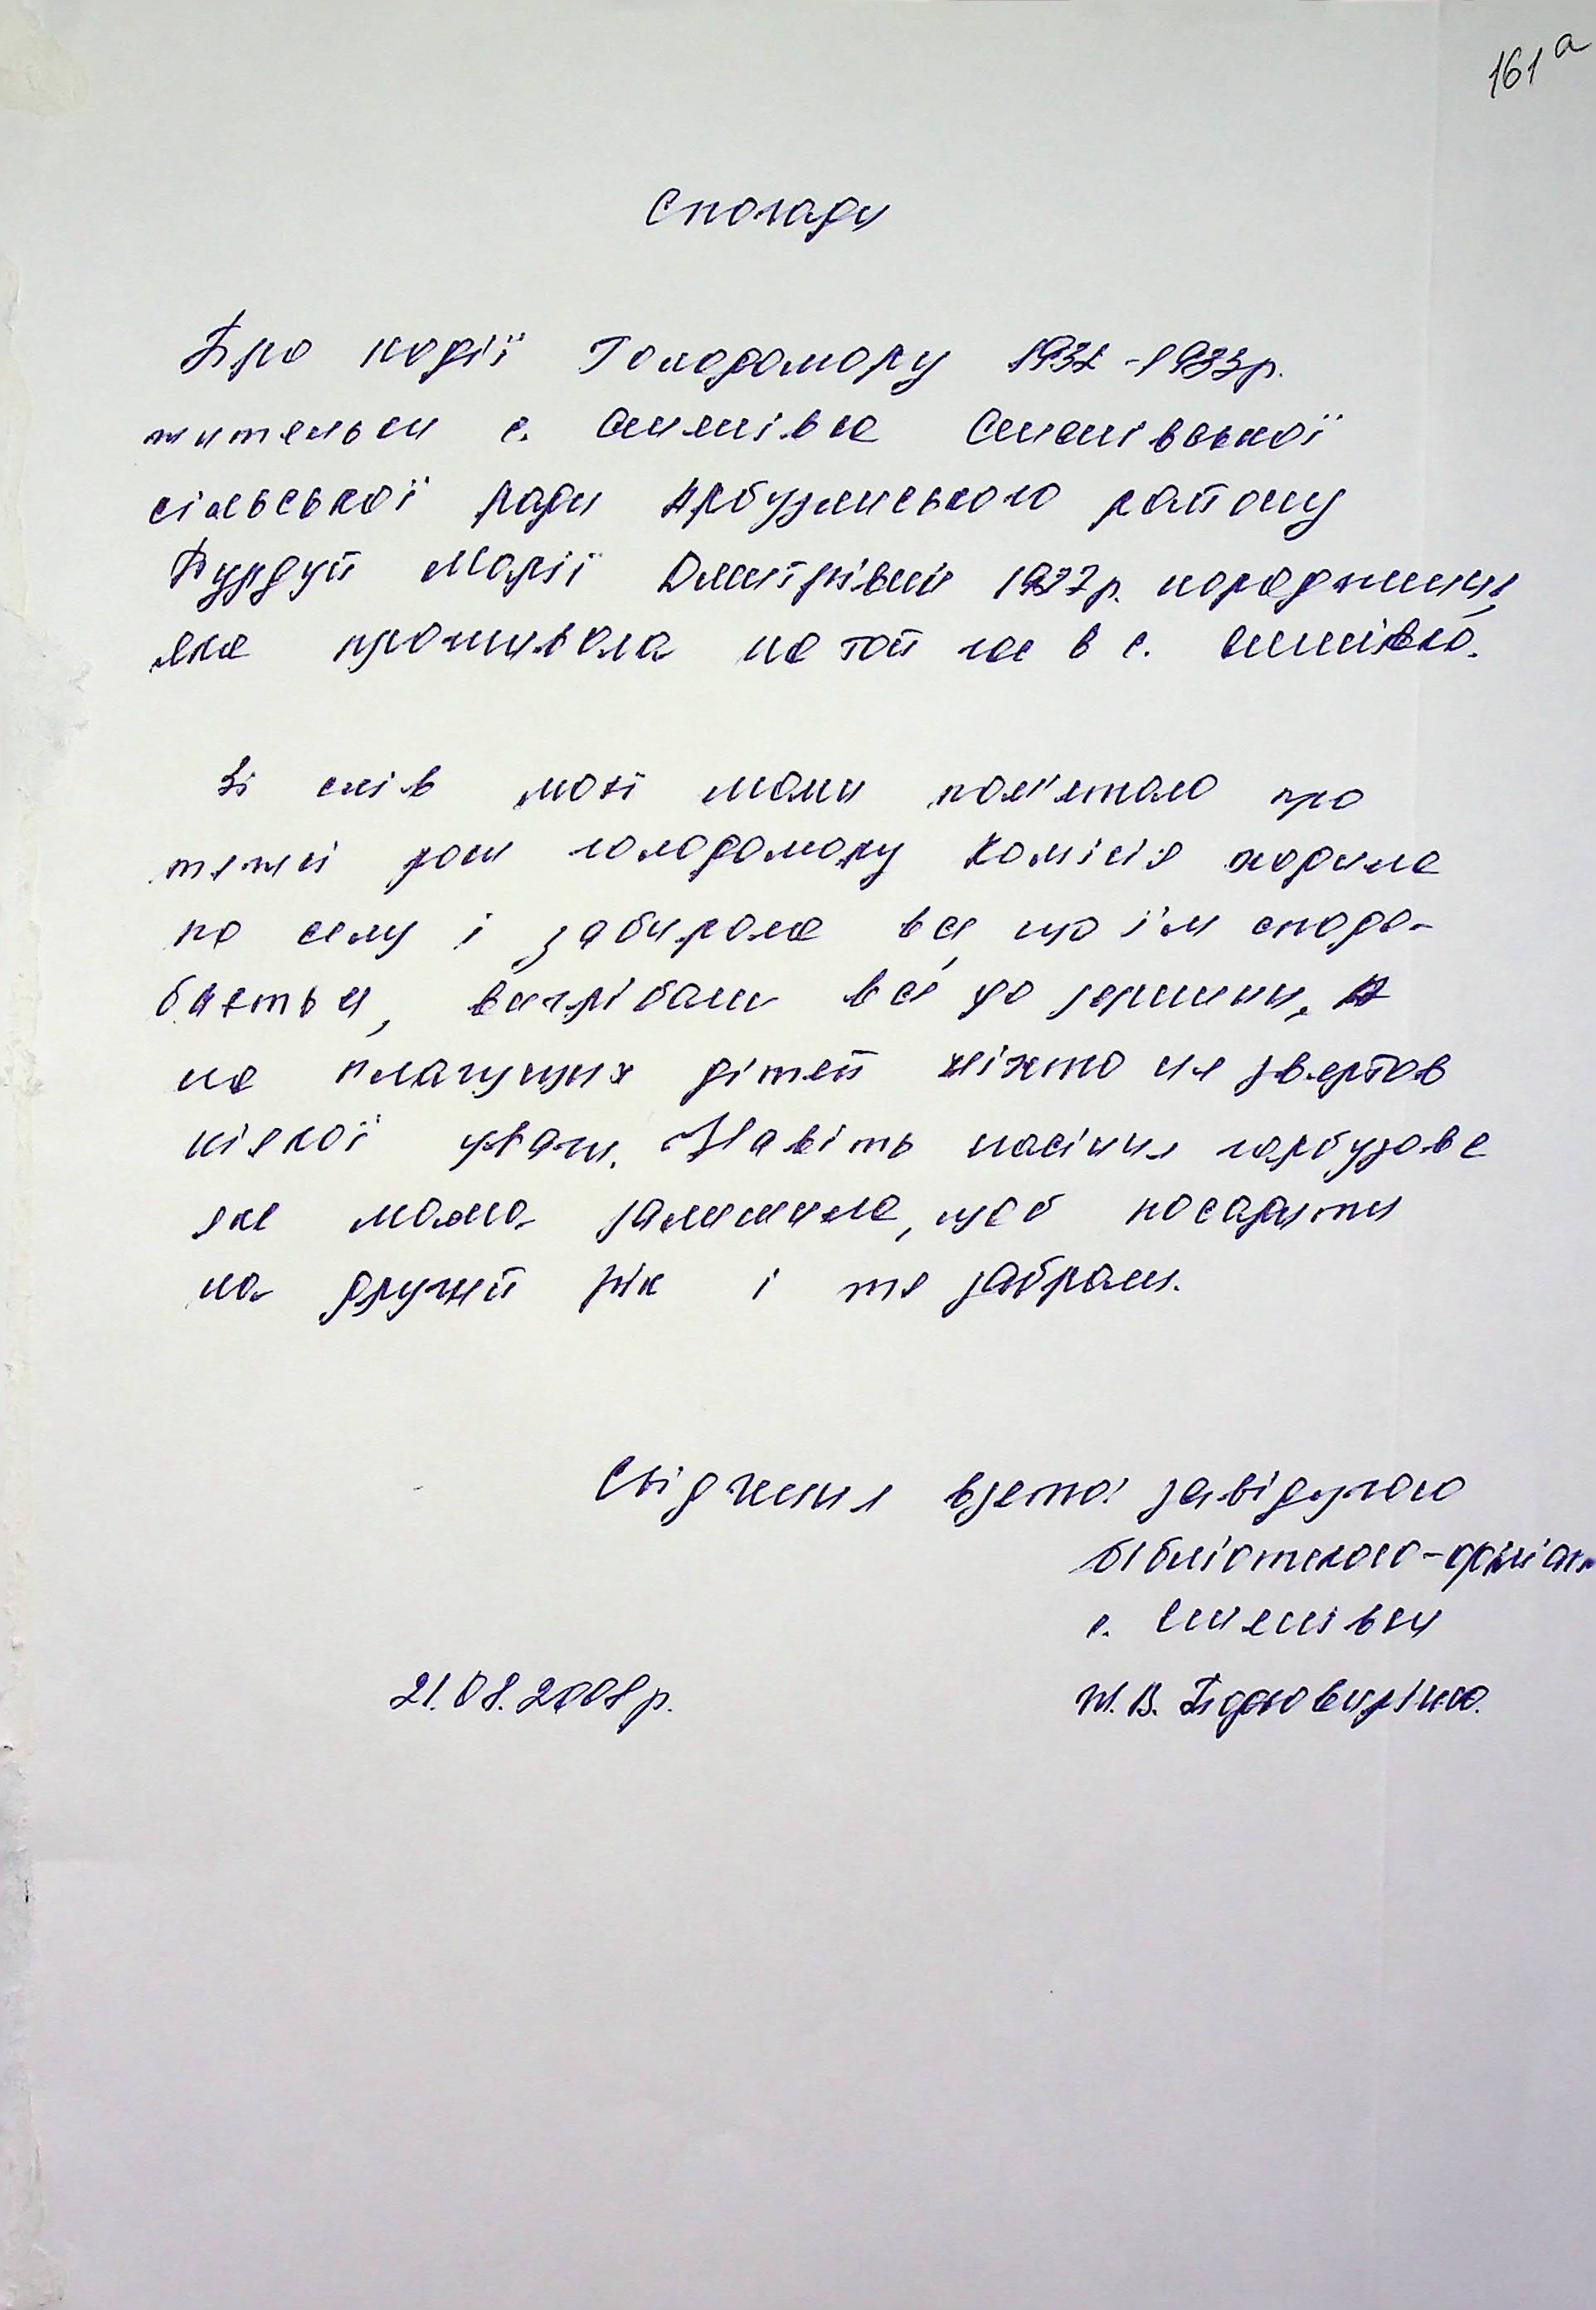 161а
Спогади
Про події Голодомору 1932-1933р.
жительки с. Семенівка Семенівської
сільської ради Арбузинського району
Бурдуй Марії Дмитрівни 1927р. народження,
яка проживала на той час в с. Семенівка.
Зі слів моєї мами пам'ятаю про
тяжкі роки голодомору Комісія ходила
по селу і забирала все, що їм сподо-
бається, вигрібали все до зернини. А
на плачущих дітей ніхто не звертав
ніякої уваги. Навіть насіння гарбузове
яке мама залишила, щоб посадити
на другий рік і те забрали.
Свідчення взято: завідуючою
бібліотекою-філіал
с. Семенівки
21.08.2008р.